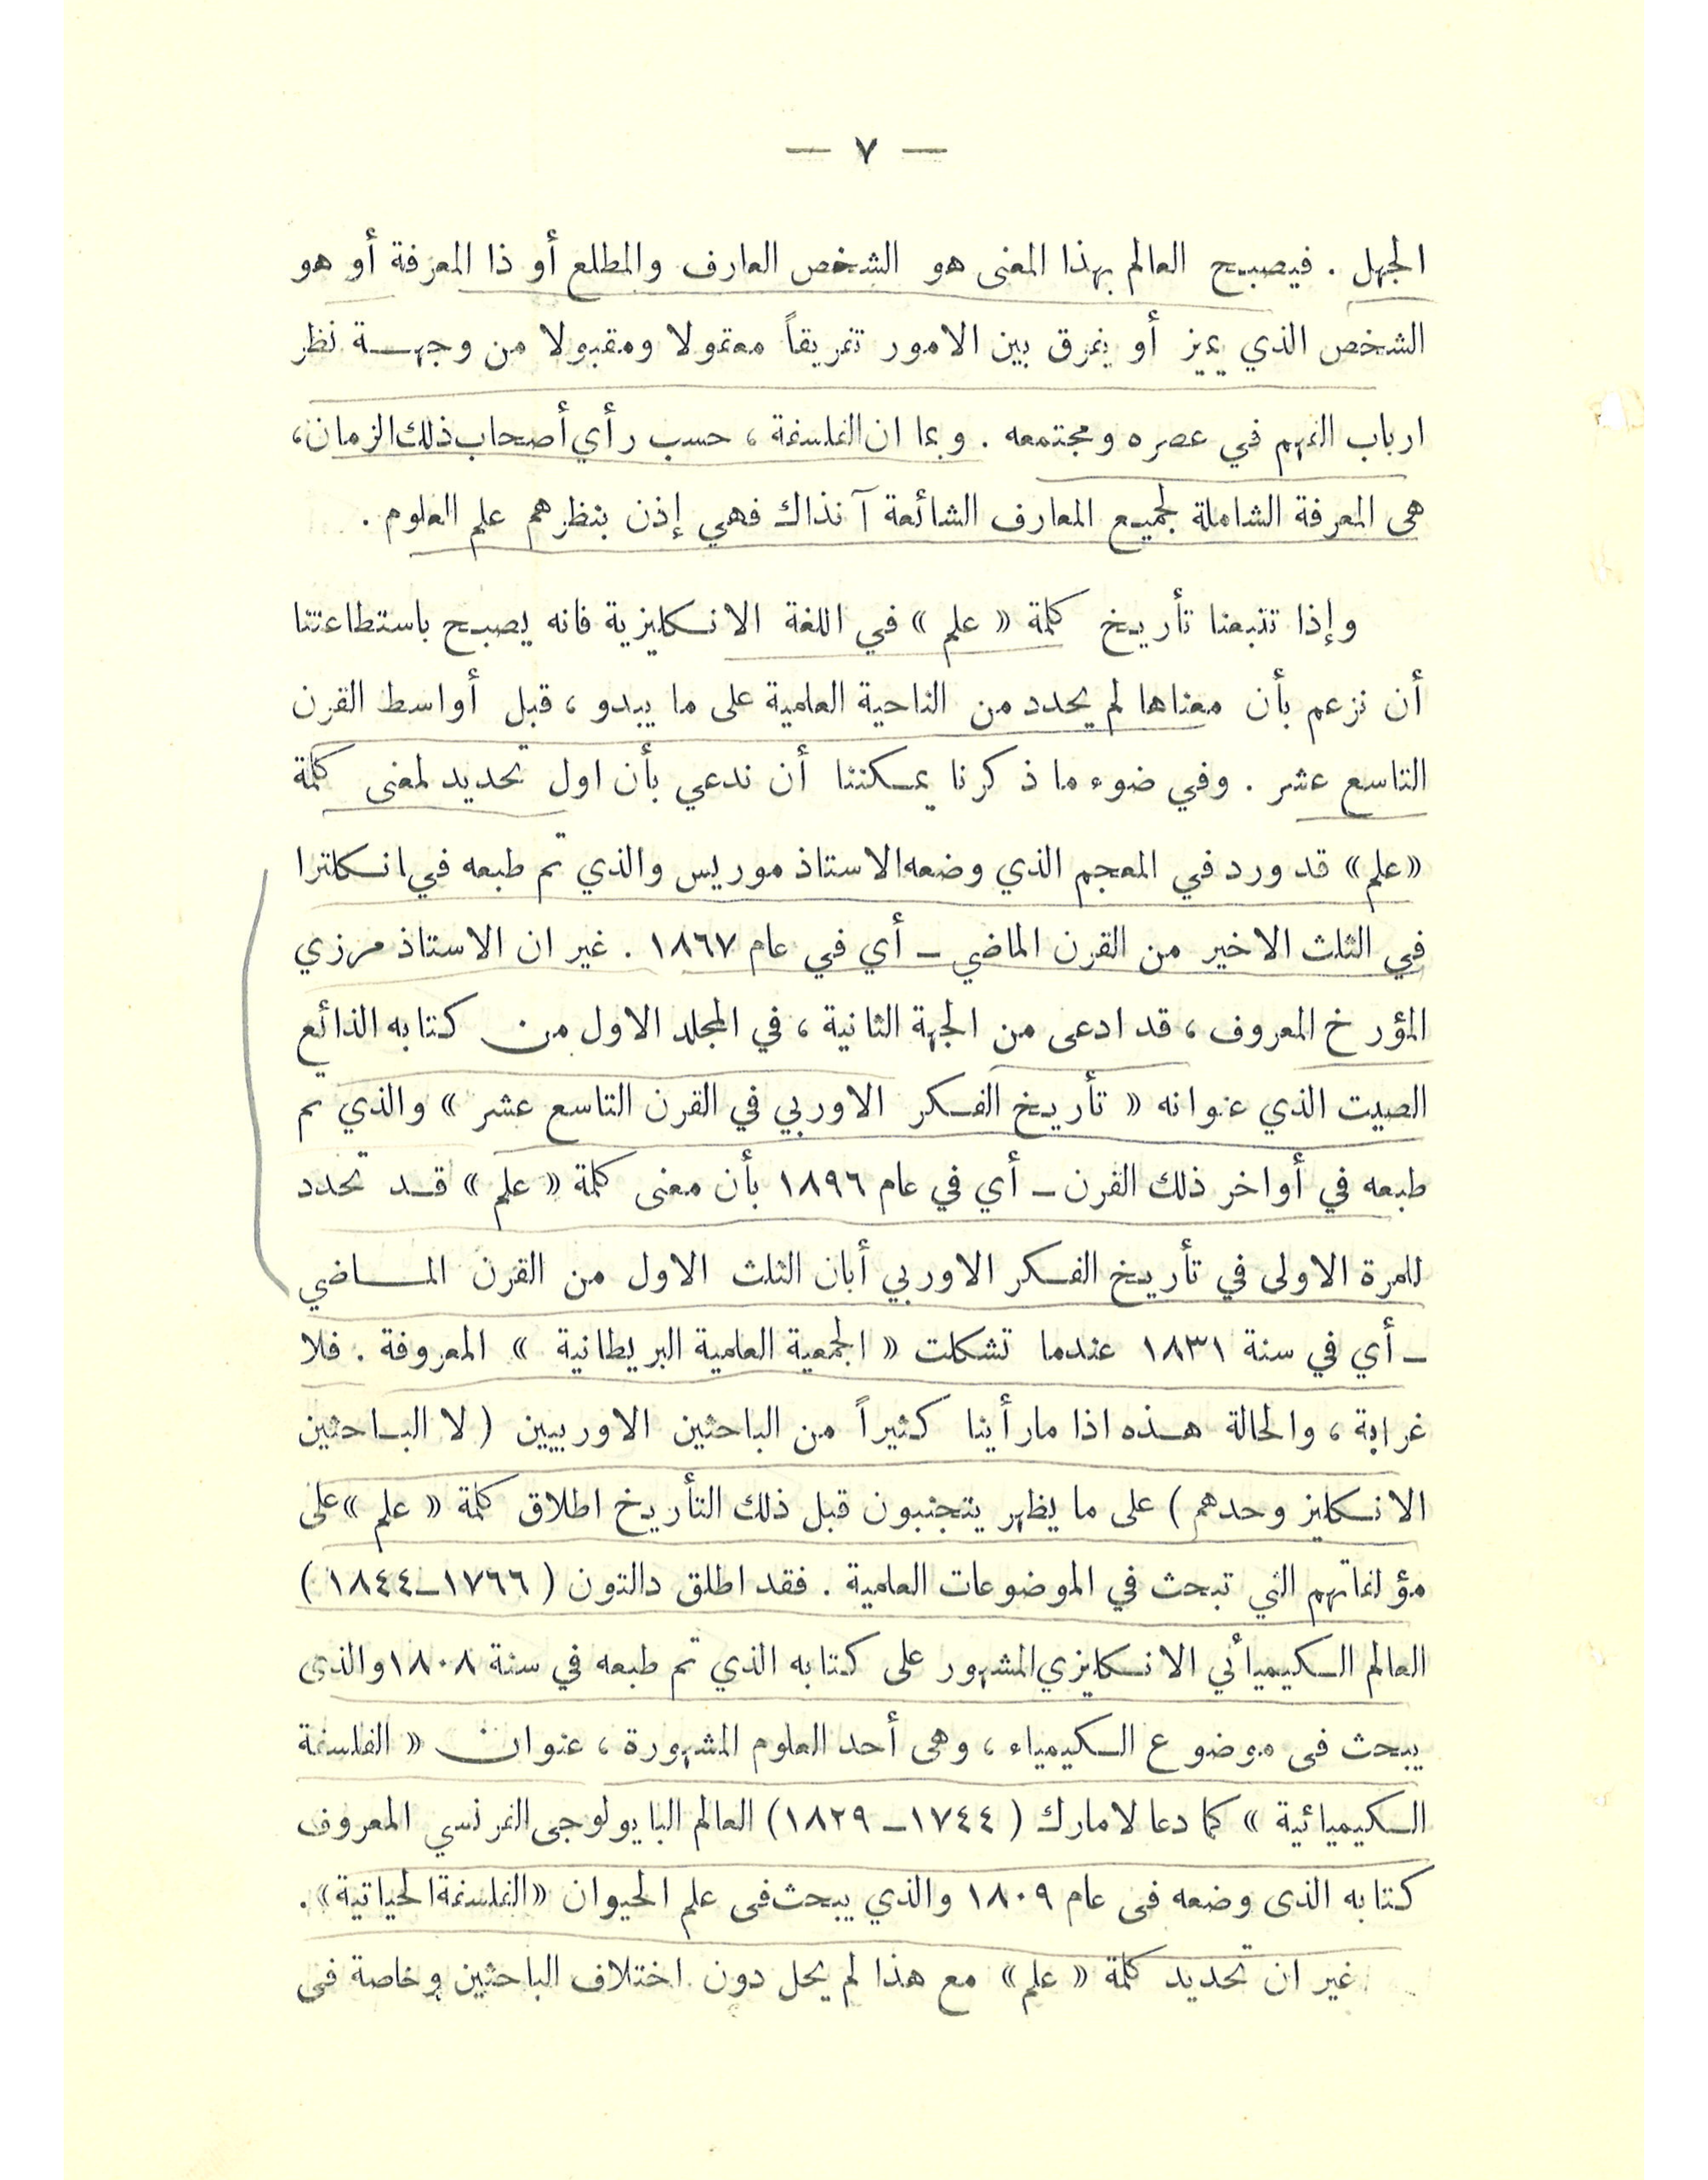 — ٧ —
الجهل . فيصبح العالم بهذا المعنى هو الشخص العارف والمطلع أو ذا المعرفة أو هو
الشخص الذي يميز أو يفرق بين الامور تفريقاً معقولا ومقبولا من وجهـــة نظر
ارباب الفهم في عصره ومجتمعه . وبما ان الفلسفة ، حسب رأي أصحاب ذلك الزمان ،
هى المعرفة الشاملة لجميع المعارف الشائعة آنذاك فهي إذن بنظرهم علم العلوم .
وإذا تتبعنا تأريخ كلمة « علم » في اللغة الانكليزية فانه يصبح باستطاعتنا
أن نزعم بأن معناها لم يحدد من الناحية العلمية على ما يبدو ، قبل أواسط القرن
التاسع عشر . وفي ضوء ما ذكرنا يمكننا أن ندعي بأن اول تحديد لمعنى كلمة
« علم » قد ورد في المعجم الذي وضعه الاستاذ موريس والذي تم طبعه في انكلترا
في الثلث الاخير من القرن الماضي ــ أي في عام ١٨٦٧ . غير ان الاستاذ مرزي
المؤرخ المعروف ، قد ادعى من الجهة الثانية ، في المجلد الاول من كتابه الذائع
الصيت الذي عنوانه « تأريخ الفكر الاوربي في القرن التاسع عشر » والذي تم
طبعه في أواخر ذلك القرن ــ أي في عام ١٨٩٦ بأن معنى كلمة « علم » قــد تحدد
للمرة الاولى في تأريخ الفكر الاوربي أبان الثلث الاول من القرن المـــاضي
ــ أي في سنة ١٨٣١ عندما تشكلت « الجمعية العلمية البريطانية » المعروفة . فلا
غرابة ، والحالة هــذه اذا مارأينا كثيراً من الباحثين الاوربيين ( لا البــاحثين
الانكليز وحدهم ) على ما يظهر يتجنبون قبل ذلك التأريخ اطلاق كلمة « علم » على
مؤلفاتهم التي تبحث في الموضوعات العلمية . فقد اطلق دالتون ( ١٧٦٦ــ١٨٤٤ )
العالم الكيميائي الانكليزي المشهور على كتابه الذي تم طبعه في سنة ١٨٠٨ والذى
يبحث فى موضوع الكيمياء ، وهى أحد العلوم المشهورة ، عنوان « الفلسفة
الكيميائية » كما دعا لامارك ( ١٧٤٤ــ ١٨٢٩ ) العالم البايولوجى الفرنسي المعروف
كتابه الذى وضعه فى عام ١٨٠٩ والذي يبحث فى علم الحيوان « الفلسفة الحياتية » .
غير ان تحديد كلمة « علم » مع هذا لم يحل دون اختلاف الباحثين وخاصة فى